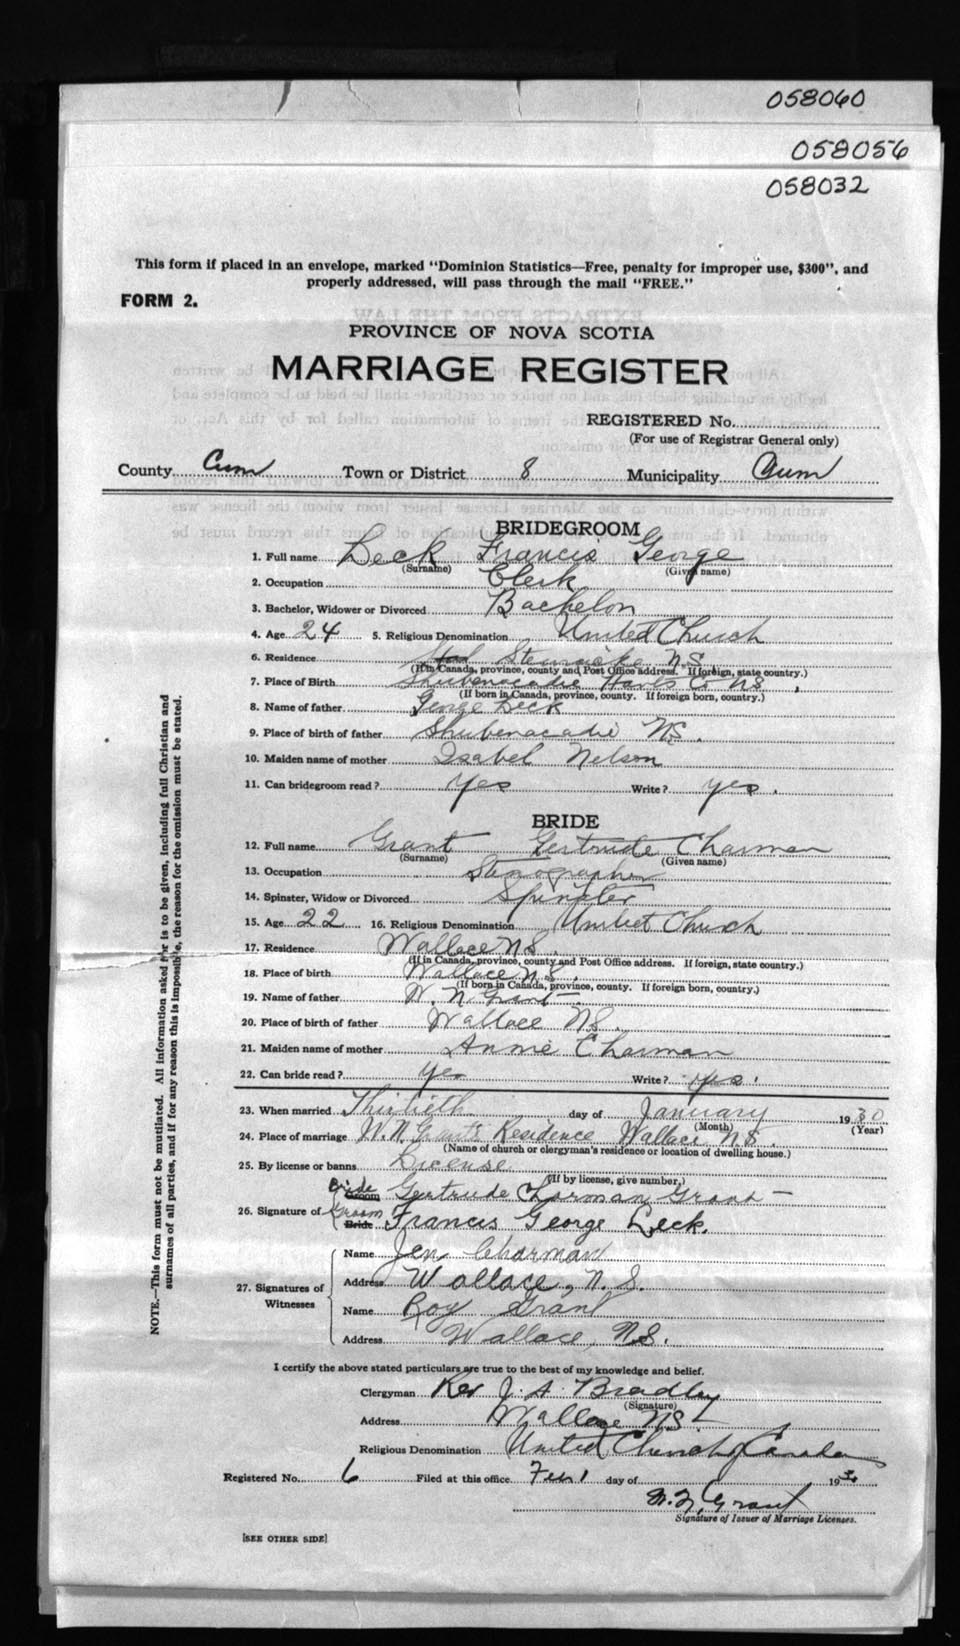 058060
058056
058032
This form if placed in an envelope, marked "Dominion Statistics—Free, penalty for improper use, $300", and
properly addressed, will pass through the mail "FREE."
FORM 2.
PROVINCE OF NOVA SCOTIA
MARRIAGE REGISTER
REGISTERED No.
(For use of Registrar General only)
County Cum Town or District 8 Municipality Cum
BRIDEGROOM
1. Full name Leck Francis George
(Surname) (Given name)
2. Occupation Clerk
3. Bachelor, Widower or Divorced Bachelor
4. Age 24 5. Religious Denomination United Church
6. Residence Stewiacke N.S.
(If in Canada, province, county and Post Office address. If foreign, state country.)
7. Place of Birth Shubenacadie Hants Co NS
(If born in Canada, province, county. If foreign born, country.)
8. Name of father George Leck
9. Place of birth of father Shubenacadie NS.
10. Maiden name of mother Isabel Nelson
11. Can bridegroom read? Yes Write? yes.
BRIDE
12. Full name Grant Gertrude Charman
(Surname) (Given name)
13. Occupation Stenographer
14. Spinster, Widow or Divorced Spinster
15. Age 22 16. Religious Denomination United Church
17. Residence Wallace N.S.
(If in Canada, province, county and Post Office address. If foreign, state country.)
18. Place of birth Wallace N.S.
(If born in Canada, province, county. If foreign born, country.)
19. Name of father W. N Grant
20. Place of birth of father Wallace NS.
21. Maiden name of mother Annie Charman
22. Can bride read? yes Write? yes.
23. When married Thirtieth day of January 1930
(Month) (Year)
24. Place of marriage W.N. Grant's Residence Wallace N.S.
(Name of church or clergyman's residence or location of dwelling house.)
25. By license or banns License
(If by license, give number.)
Bride Groom Gertrude Charman Grant
26. Signature of Groom Bride Francis George Leck.
Name Jen Charman
27. Signatures of Witnesses Address Wallace, N.S.
Name Roy Grant
Address Wallace, N.S.
I certify the above stated particulars are true to the best of my knowledge and belief.
Clergyman Rev J. A. Bradley
(Signature)
Address Wallace NS
Religious Denomination United Church of Canada
Registered No. 6 Filed at this office Feb 1 day of 1930
W. N. Grant
Signature of Issuer of Marriage Licenses.
[SEE OTHER SIDE]
NOTE.—This form must not be mutilated. All information asked for is to be given, including full Christian and
surnames of all parties, and if for any reason this is impossible, the reason for the omission must be stated.